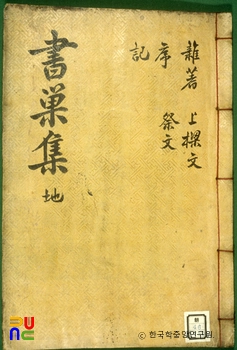 雜著 上樑文
序 祭文
記
書巢集 地
ⓒ 한국학중앙연구원